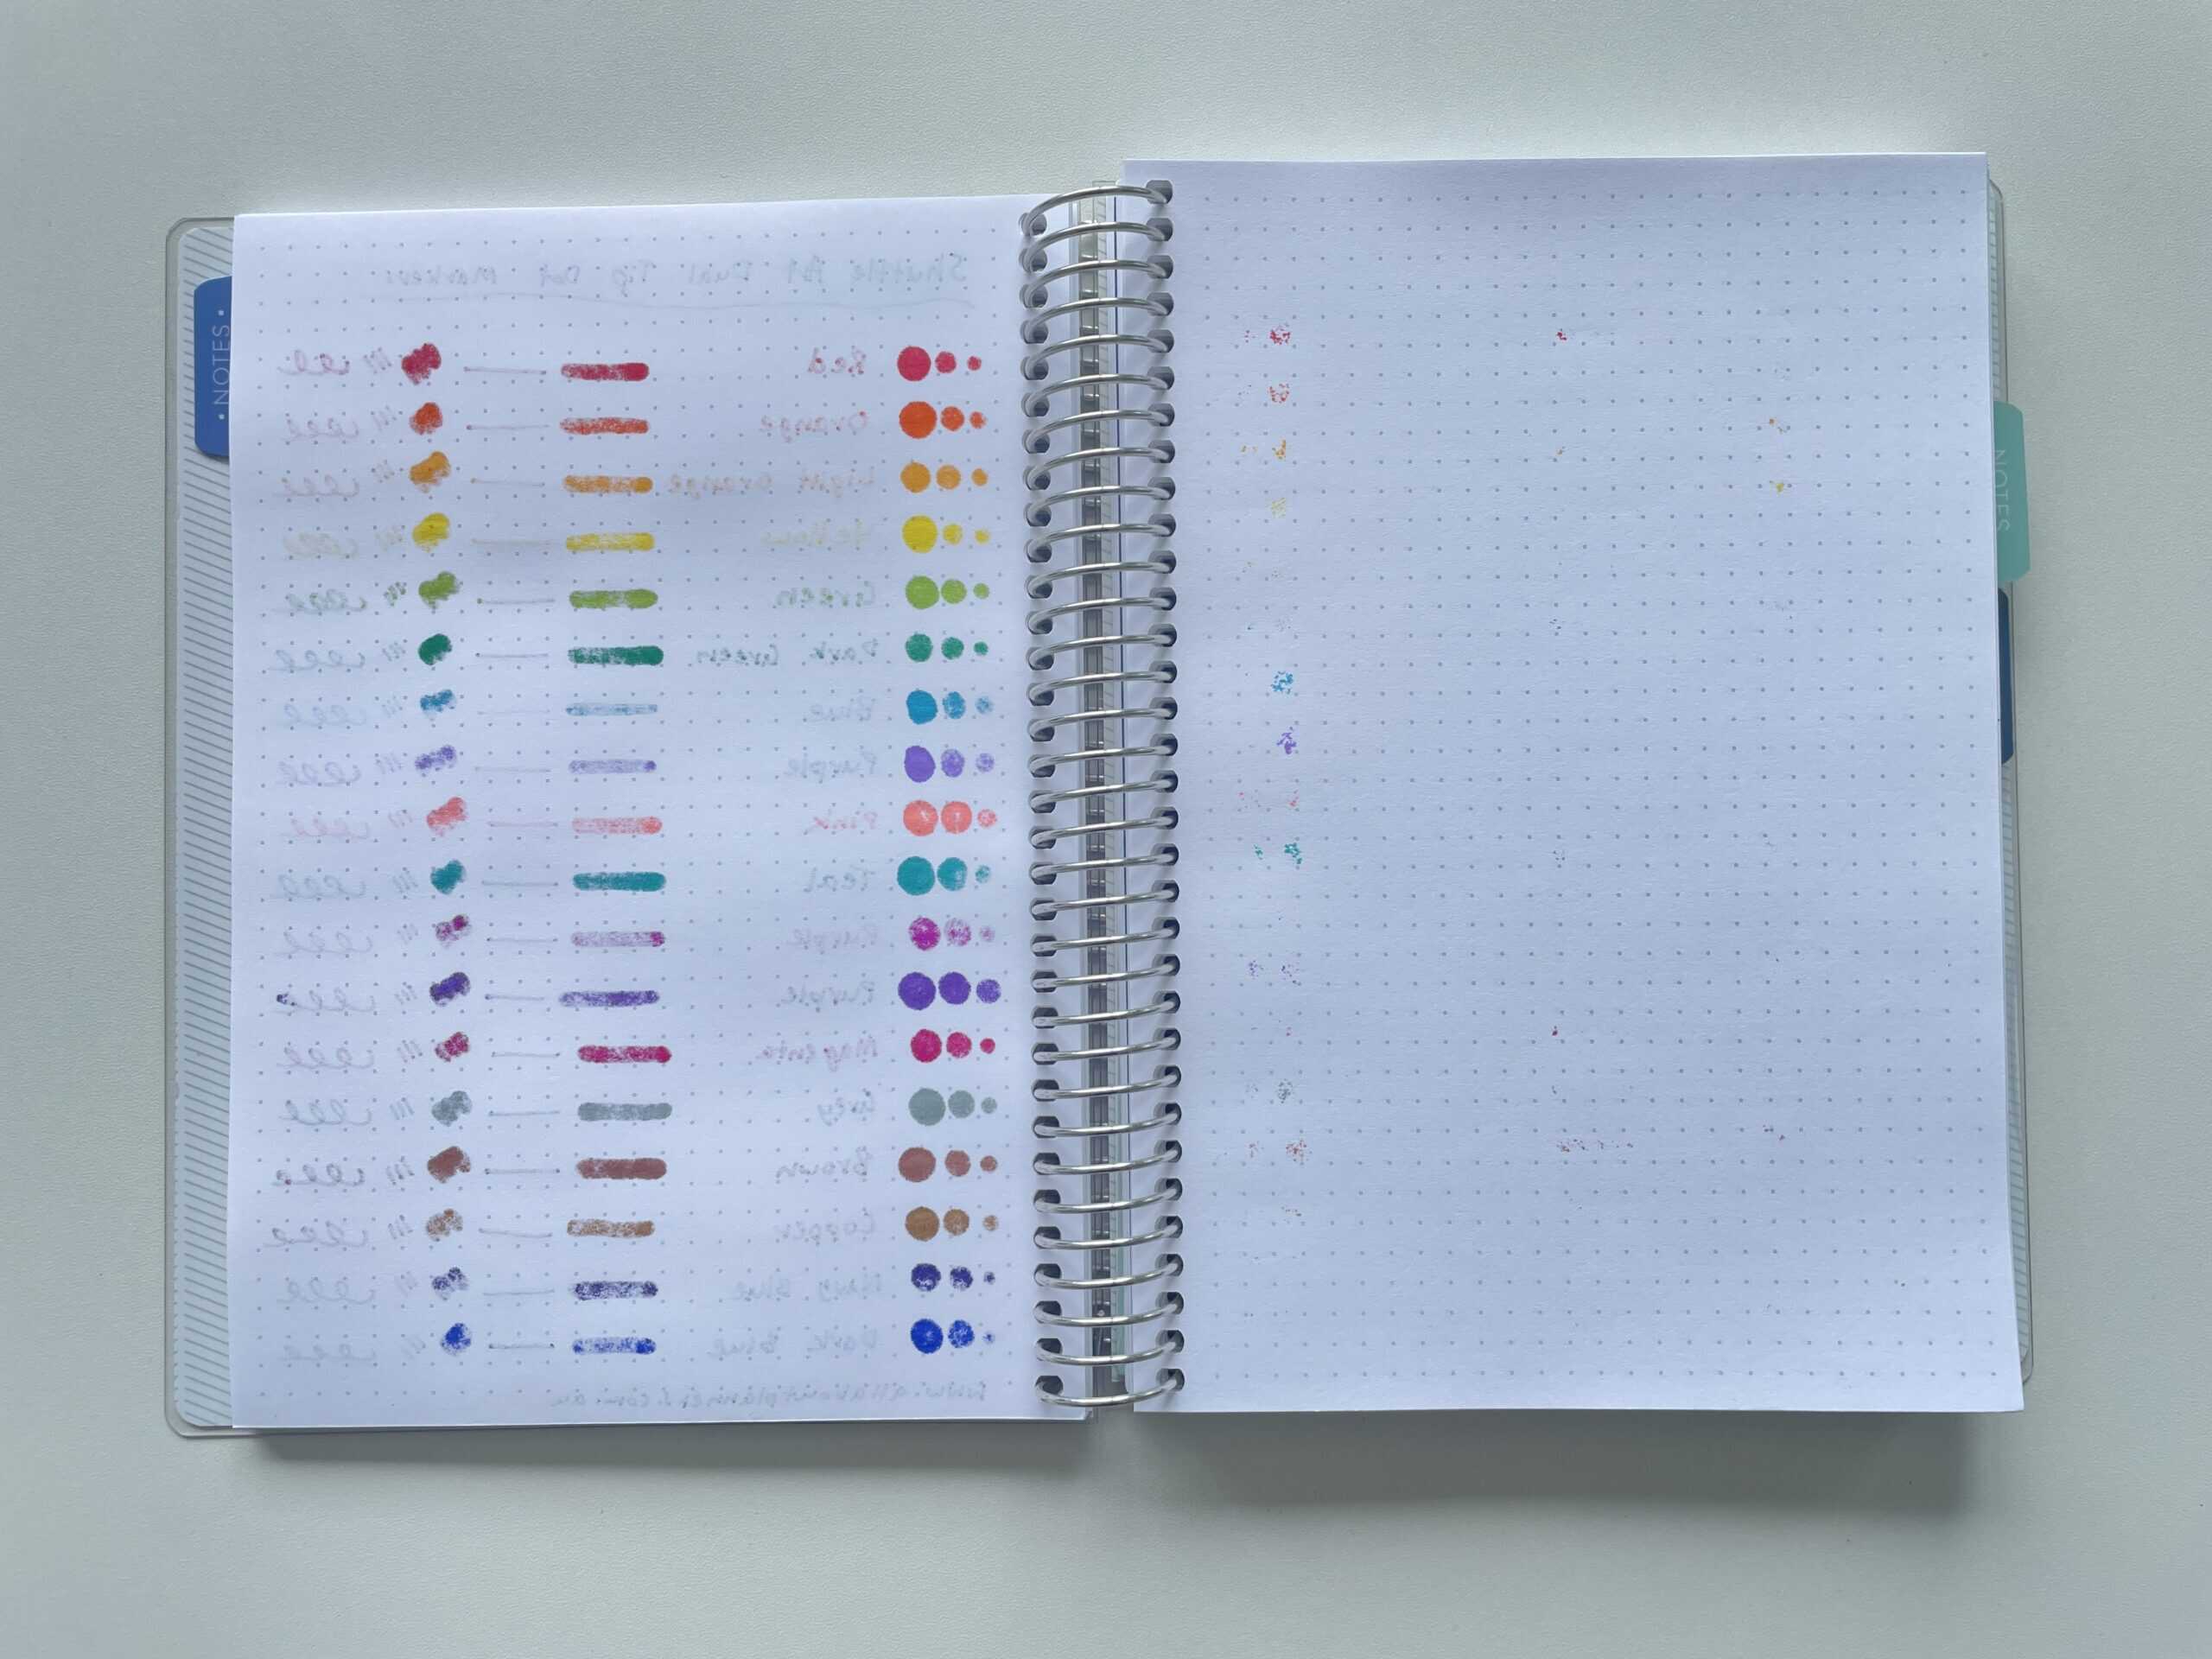 Shuttle Art Dual Tip Dot Markers
• NOTES •
Red
Orange
Light orange
Yellow
Green
Dark Green
Blue
Purple
Pink
Teal
Purple
Purple
Magenta
Grey
Brown
Copper
Navy Blue
Dark Blue
www.allaboutplanners.com.au
NOTES